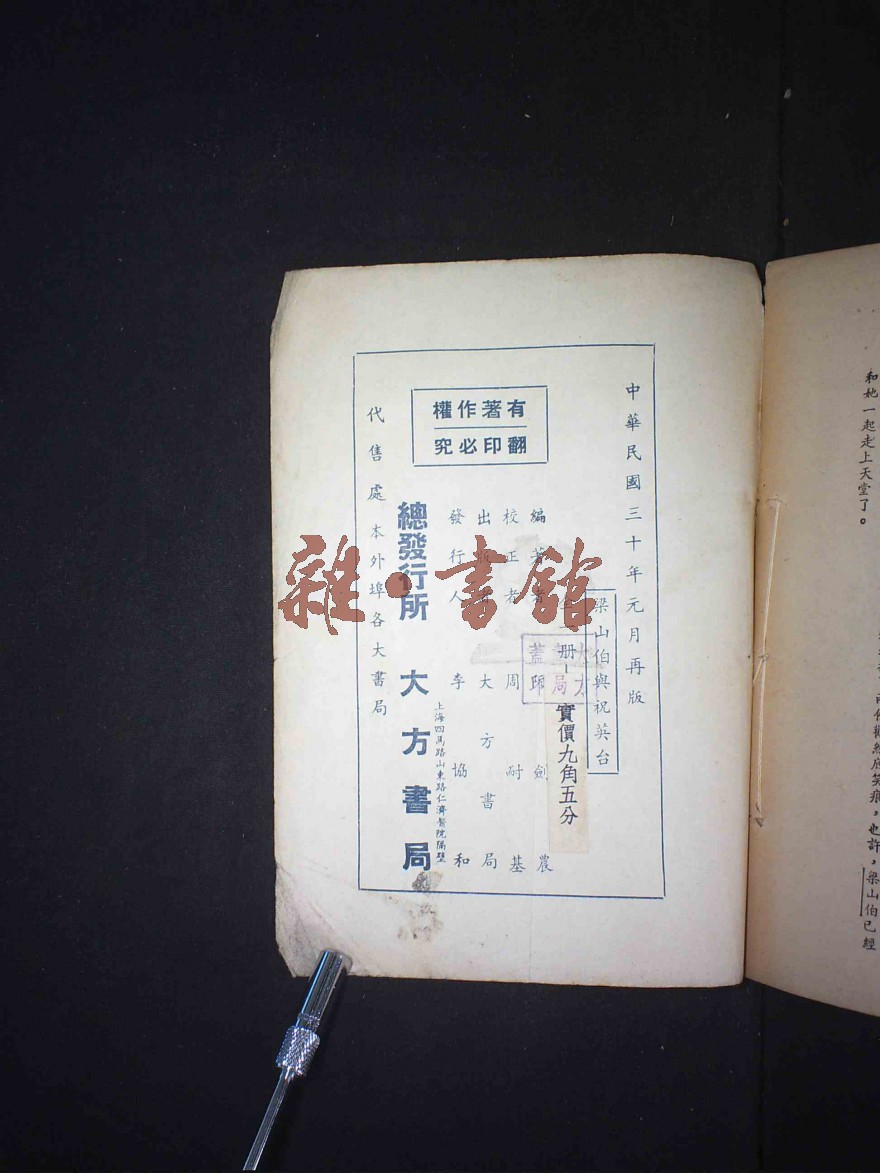 和她一起走上天堂了。
梁山伯已經
中華民國三十年元月再版
梁山伯與祝英台
冊
實價九角五分
有著作權
翻印必究
編著者 劍農
校正者 周耐基
出版者 大方書局
發行人 李協和
總發行所 大方書局
上海四馬路山東路仁濟醫院隔壁
代售處 本外埠各大書局
雜·書館